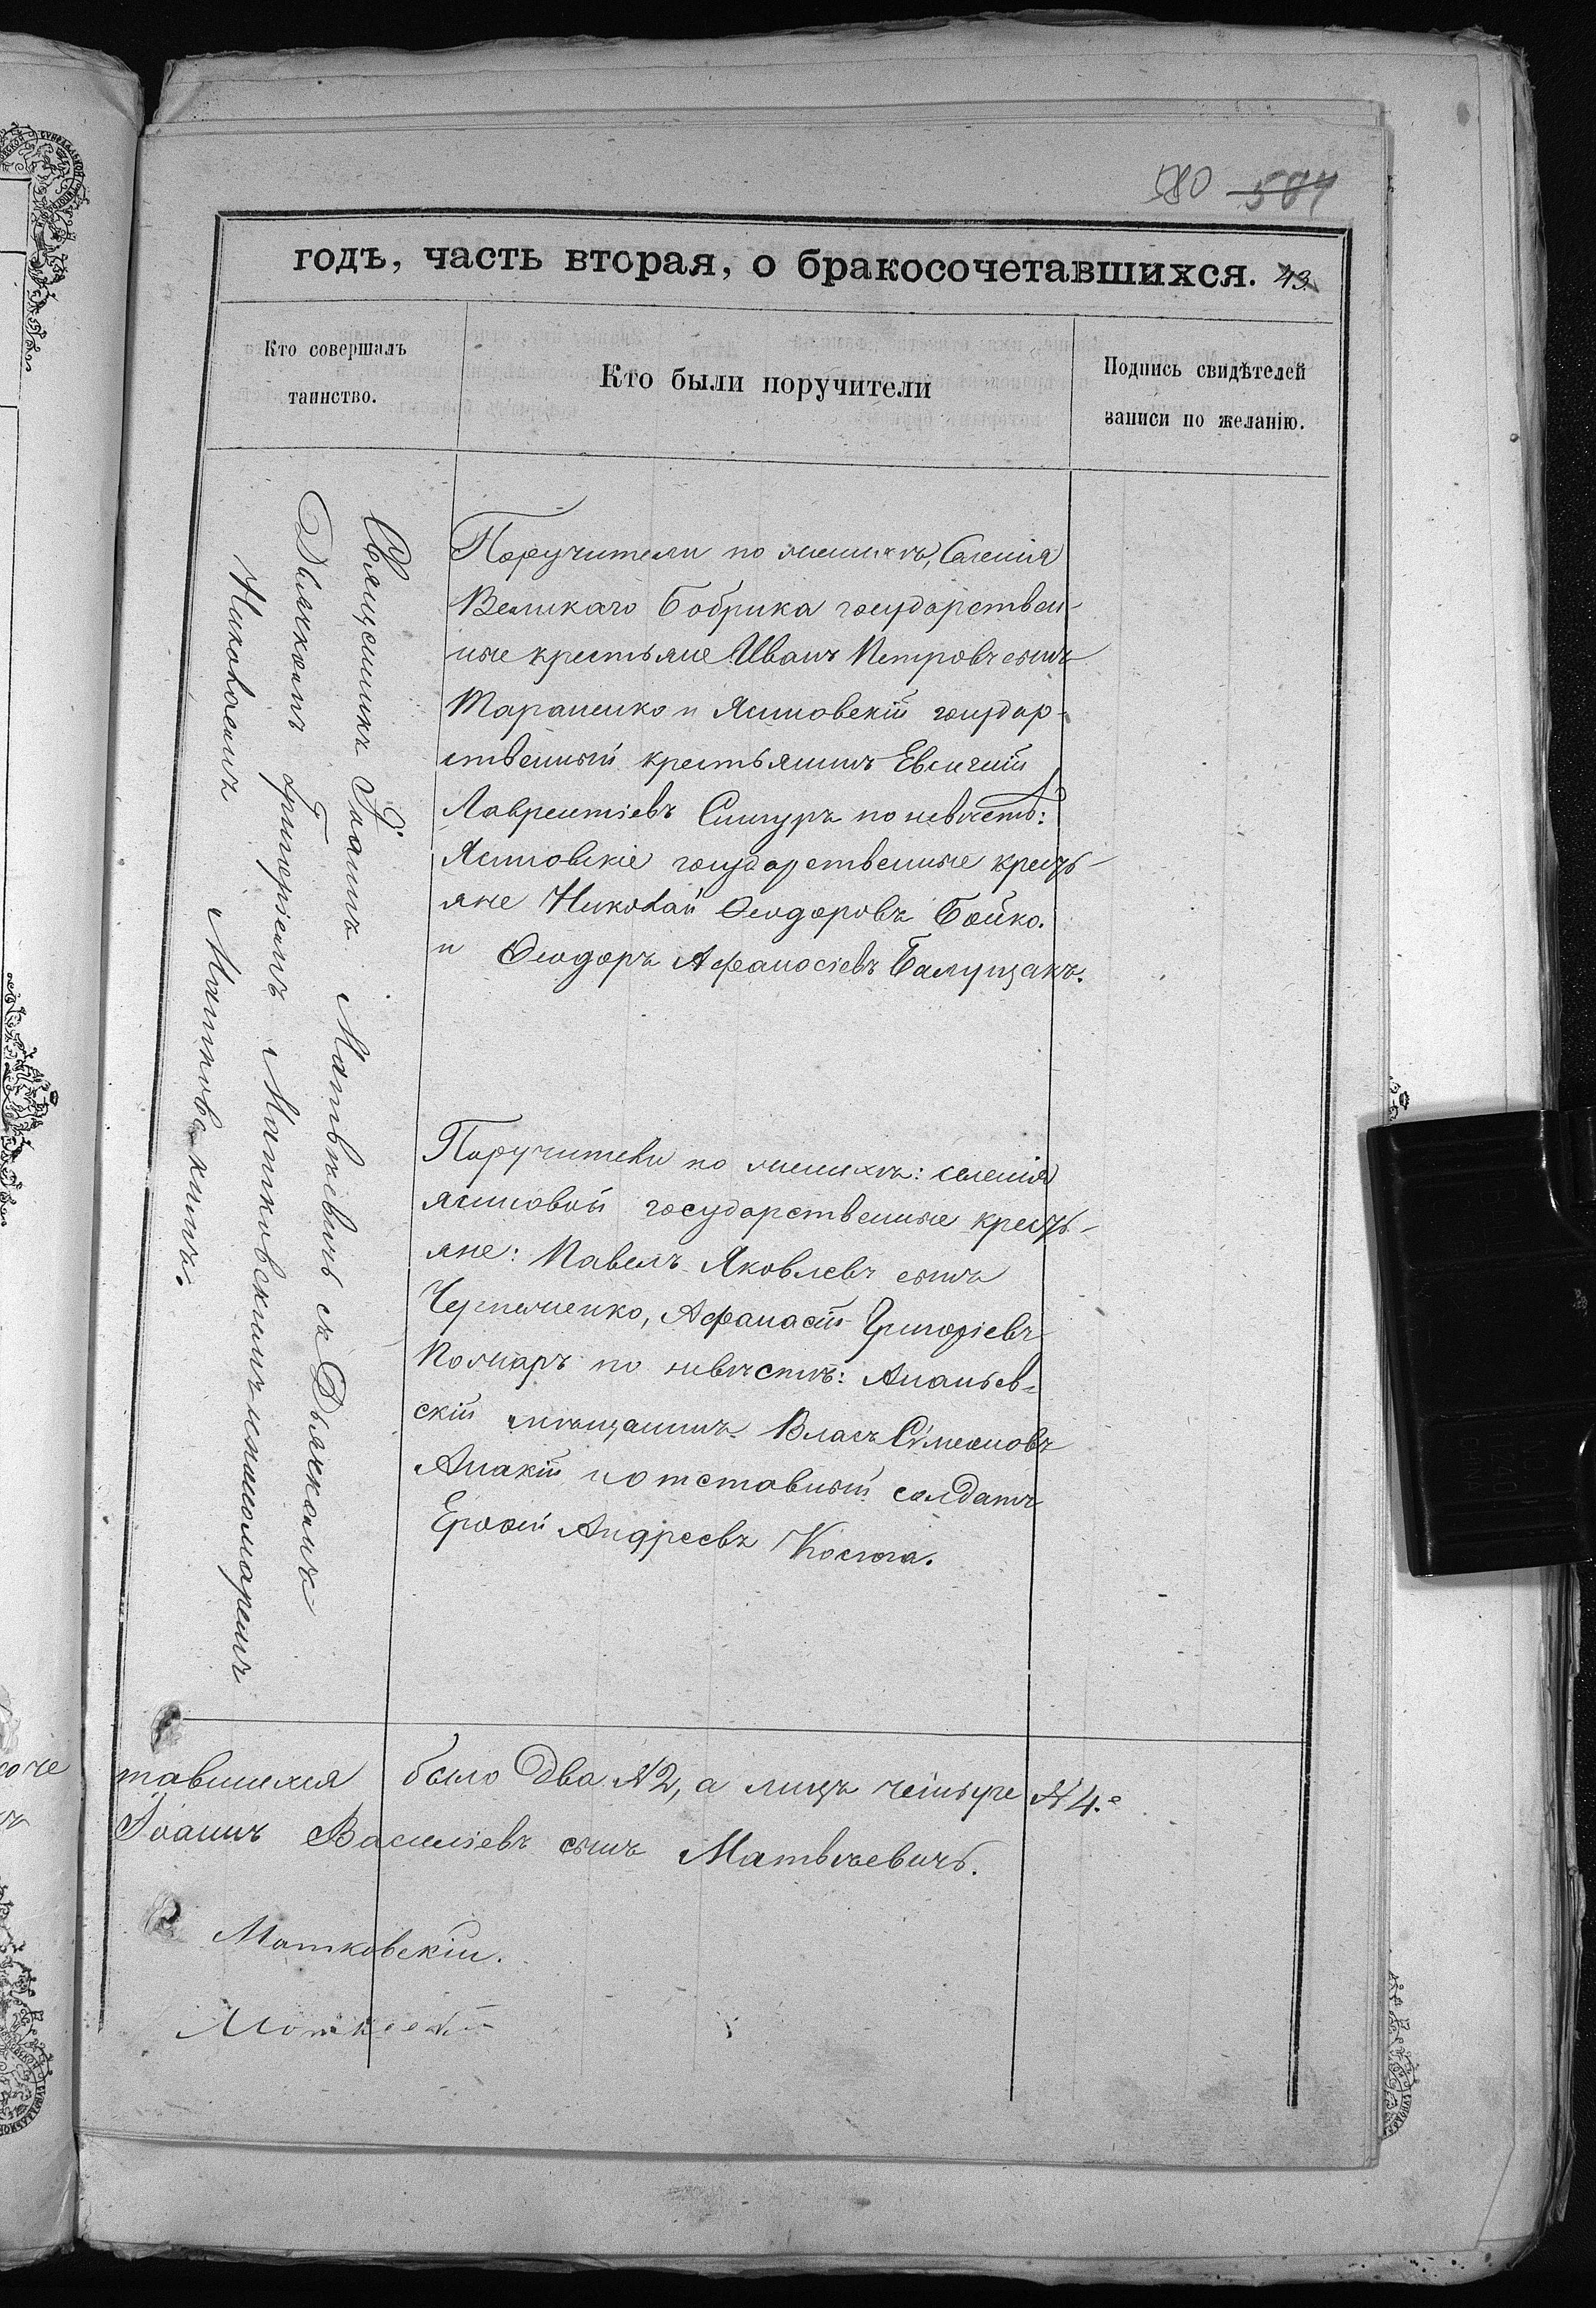 580 584
годъ, часть вторая, о бракосочетавшихся. 43
Кто совершалъ
таинство.
Кто были поручители
Подпись свидѣтелей
записи по желанію.
Священникъ Іоаннъ Матвѣевичъ съ Дьячкомъ
Дьячкомъ Григоріемъ Матковскимъ и пономаремъ
Николаемъ Матковскимъ.
Поручители по женихѣ, Селенія
Великаго Бобрика государствен-
ные крестьяне Иванъ Петровъ сынъ
Тараненко и Ясиновскій государ-
ственный крестьянинъ Евгеній
Лаврентіевъ Снигуръ по невѣстѣ:
Ясиновскіе государственные кресть-
яне Николай Ѳеодоровъ Бойко.
и Ѳеодоръ Афанасіевъ Балущакъ.
Поручители по женихѣ: селенія
Ясиновой государственные кресть-
яне: Павелъ Яковлевъ сынъ
Афанасій Григоріевъ
по невѣстѣ: Ананьев-
скій мѣщанинъ Власъ Симеоновъ
и отставный солдатъ
Ерофей Андреевъ Косюга.
соче
тавшихся было два №2, а лицъ четыре №4.е
Іоаннъ Василіевъ сынъ Матвѣевичъ.
Матковскій.
Матковскій